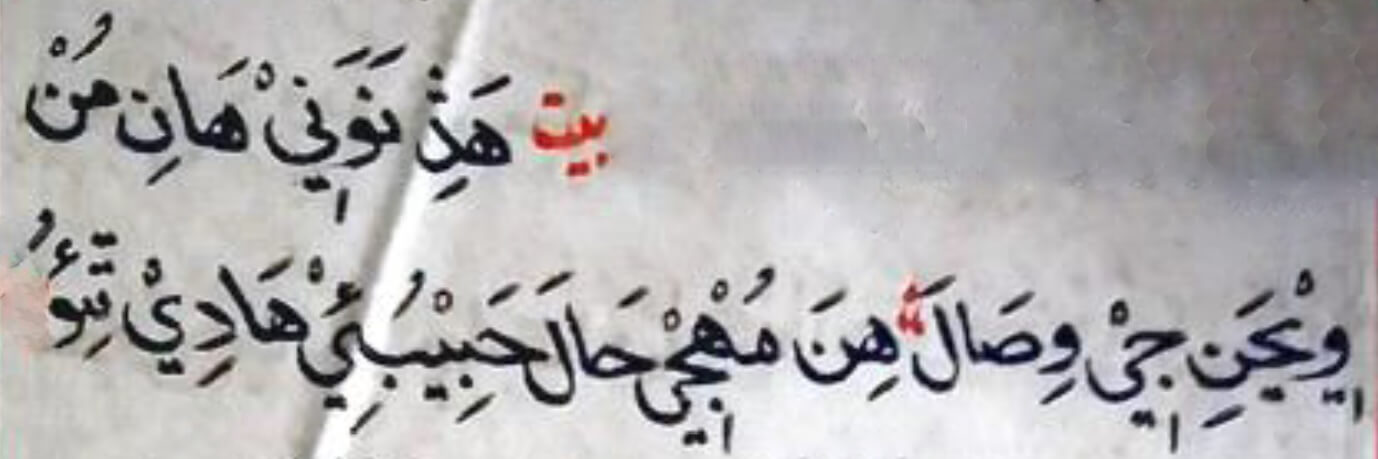 بيت هَذِ نَوَنِيْ هَانِ مُنْ
وِيْحَنِ جِيْ وِصَالَ هِنَ مُهْجِيْ حَالَ حَبِيْبُ هَادِيْ